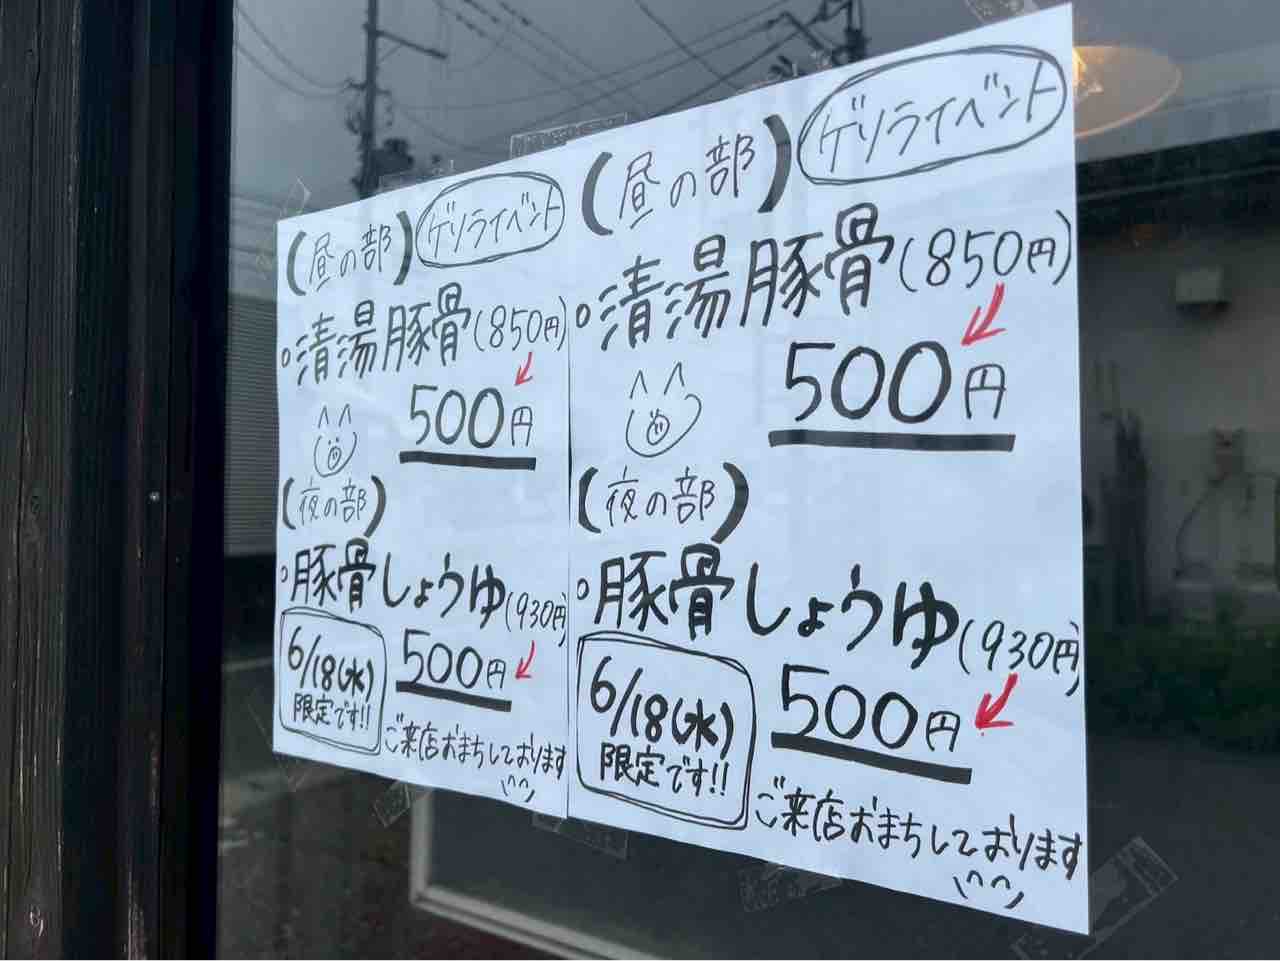 (昼の部) ゲリライベント
・清湯豚骨(850円)
500円
(夜の部)
・豚骨しょうゆ(930円)
500円
6/18(水)
限定です!!
ご来店おまちしております
(昼の部) ゲリライベント
・清湯豚骨(850円)
500円
(夜の部)
・豚骨しょうゆ(930円)
500円
6/18(水)
限定です!!
ご来店おまちしております